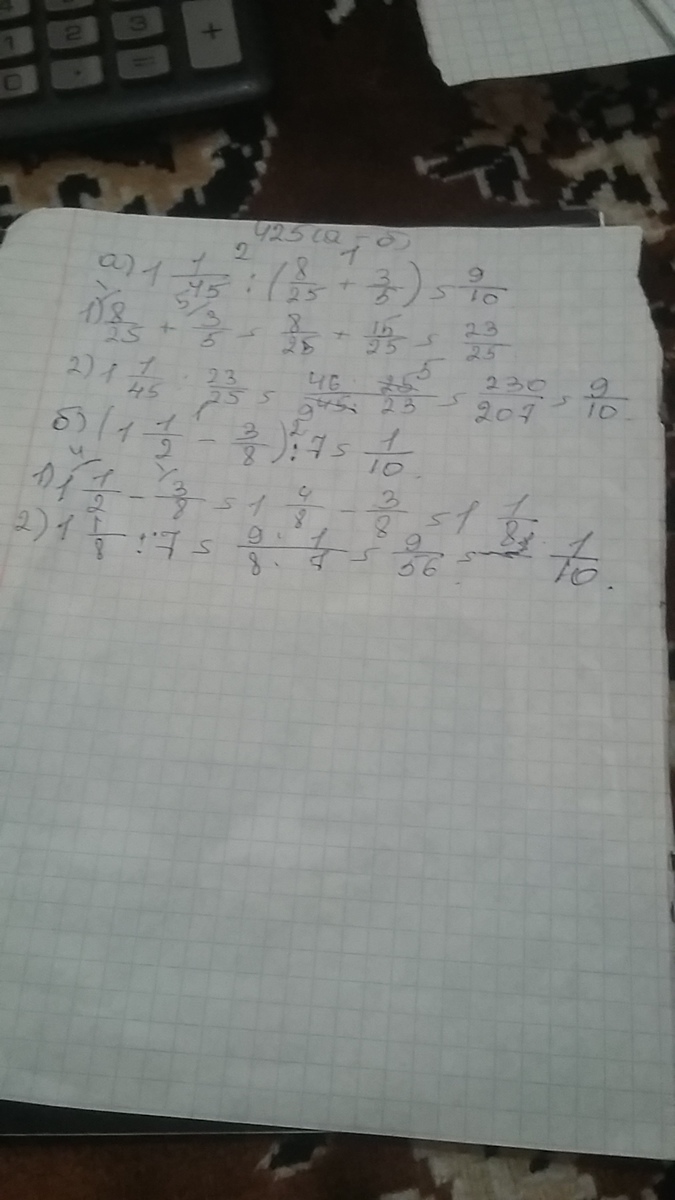 1 2 3 +
0 . =
425 (а - б)
а) 1 1/45 : (8/25 + 3/5) = 9/10
1) 8/25 + 3/5 = 8/25 + 15/25 = 23/25
2) 1 1/45 · 23/25 = 46 · 25/45 · 23 = 230/207 = 9/10
б) (1 1/2 - 3/8) : 7 = 1/10.
1) 1 1/2 - 3/8 = 1 4/8 - 3/8 = 1 1/8
2) 1 1/8 : 7 = 9 · 1/8 · 7 = 9/56 = 1/10.